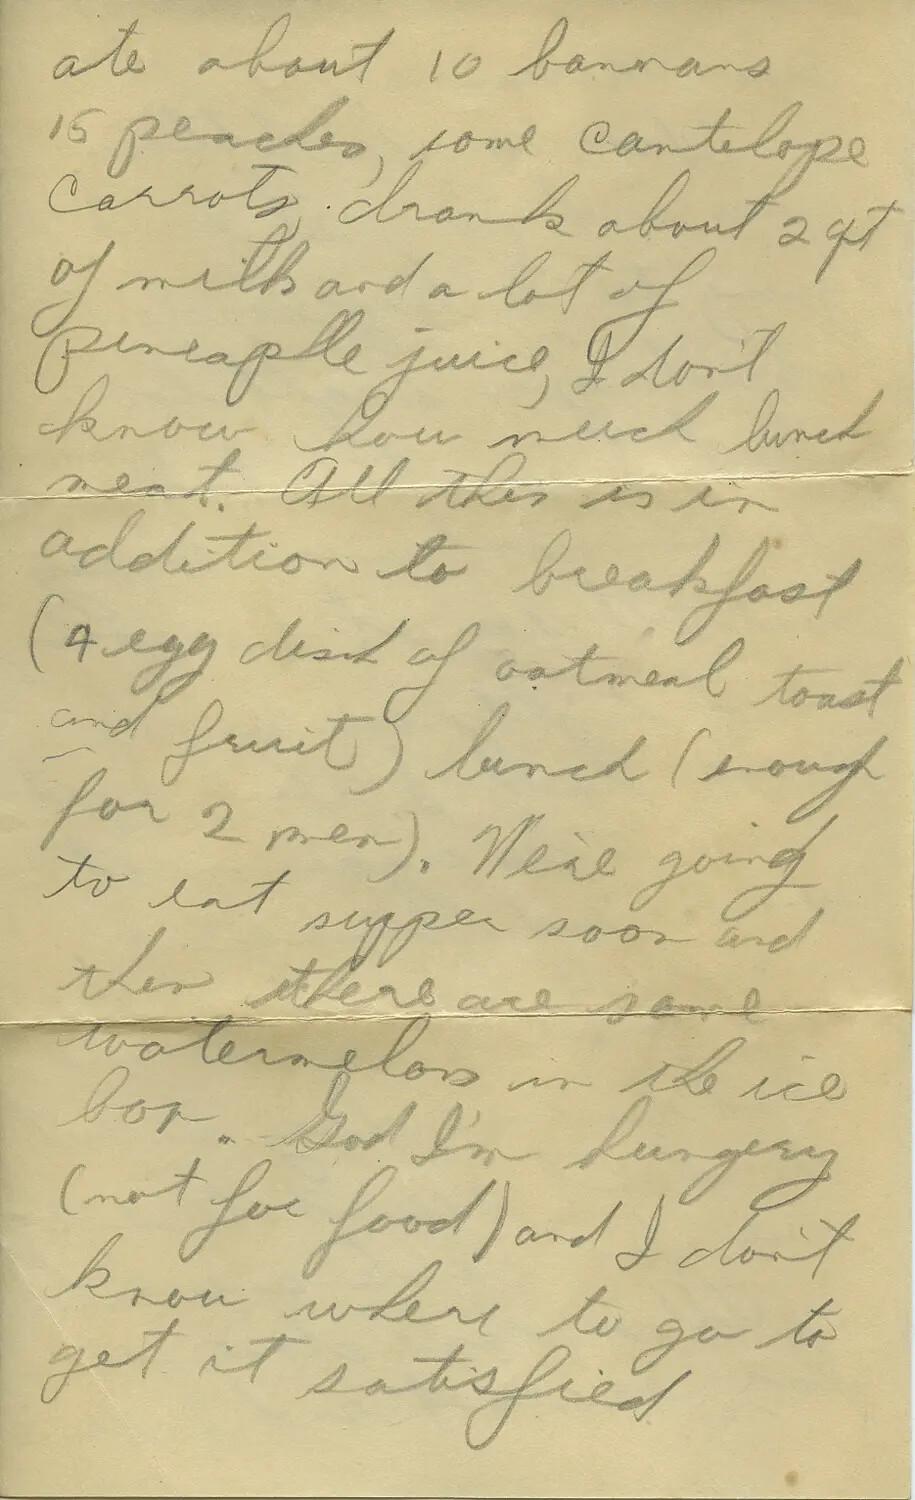 ate about 10 bannans
15 peaches, some cantelope
carrots, drank about 2 qt
of milk and a lot of
pineaplle juice, I don't
know how much lunch
meat. All this is in
addition to breakfast
(4 egg dish of oatmeal toast
and fruit) lunch (enough
for 2 men). We're going
to eat supper soon and
then there are some
watermelons in the ice
box. God I'm hungery
(not for food) and I don't
know where to go to
get it satisfied